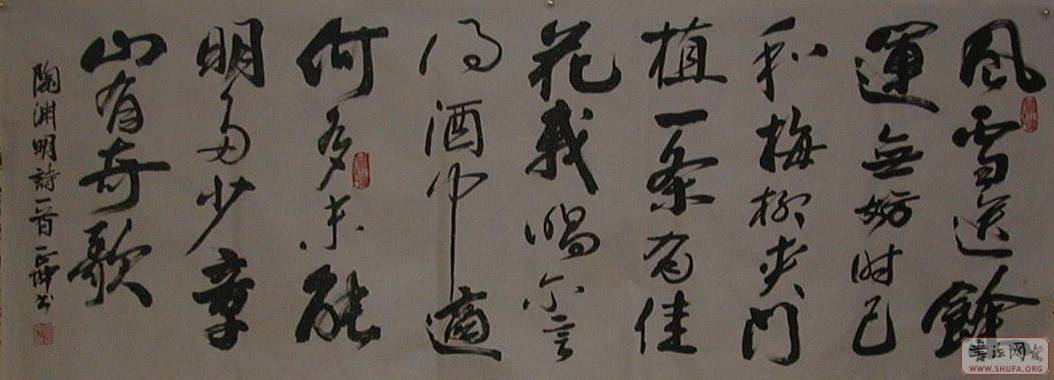 風雪送餘
運無妨时已
和梅柳夾門
植一条有佳
花我唱尔言
得酒中適
何多未能
明多少章
山有奇歌
陶渊明詩一首 书
書法网
WWW.SHUFA.ORG